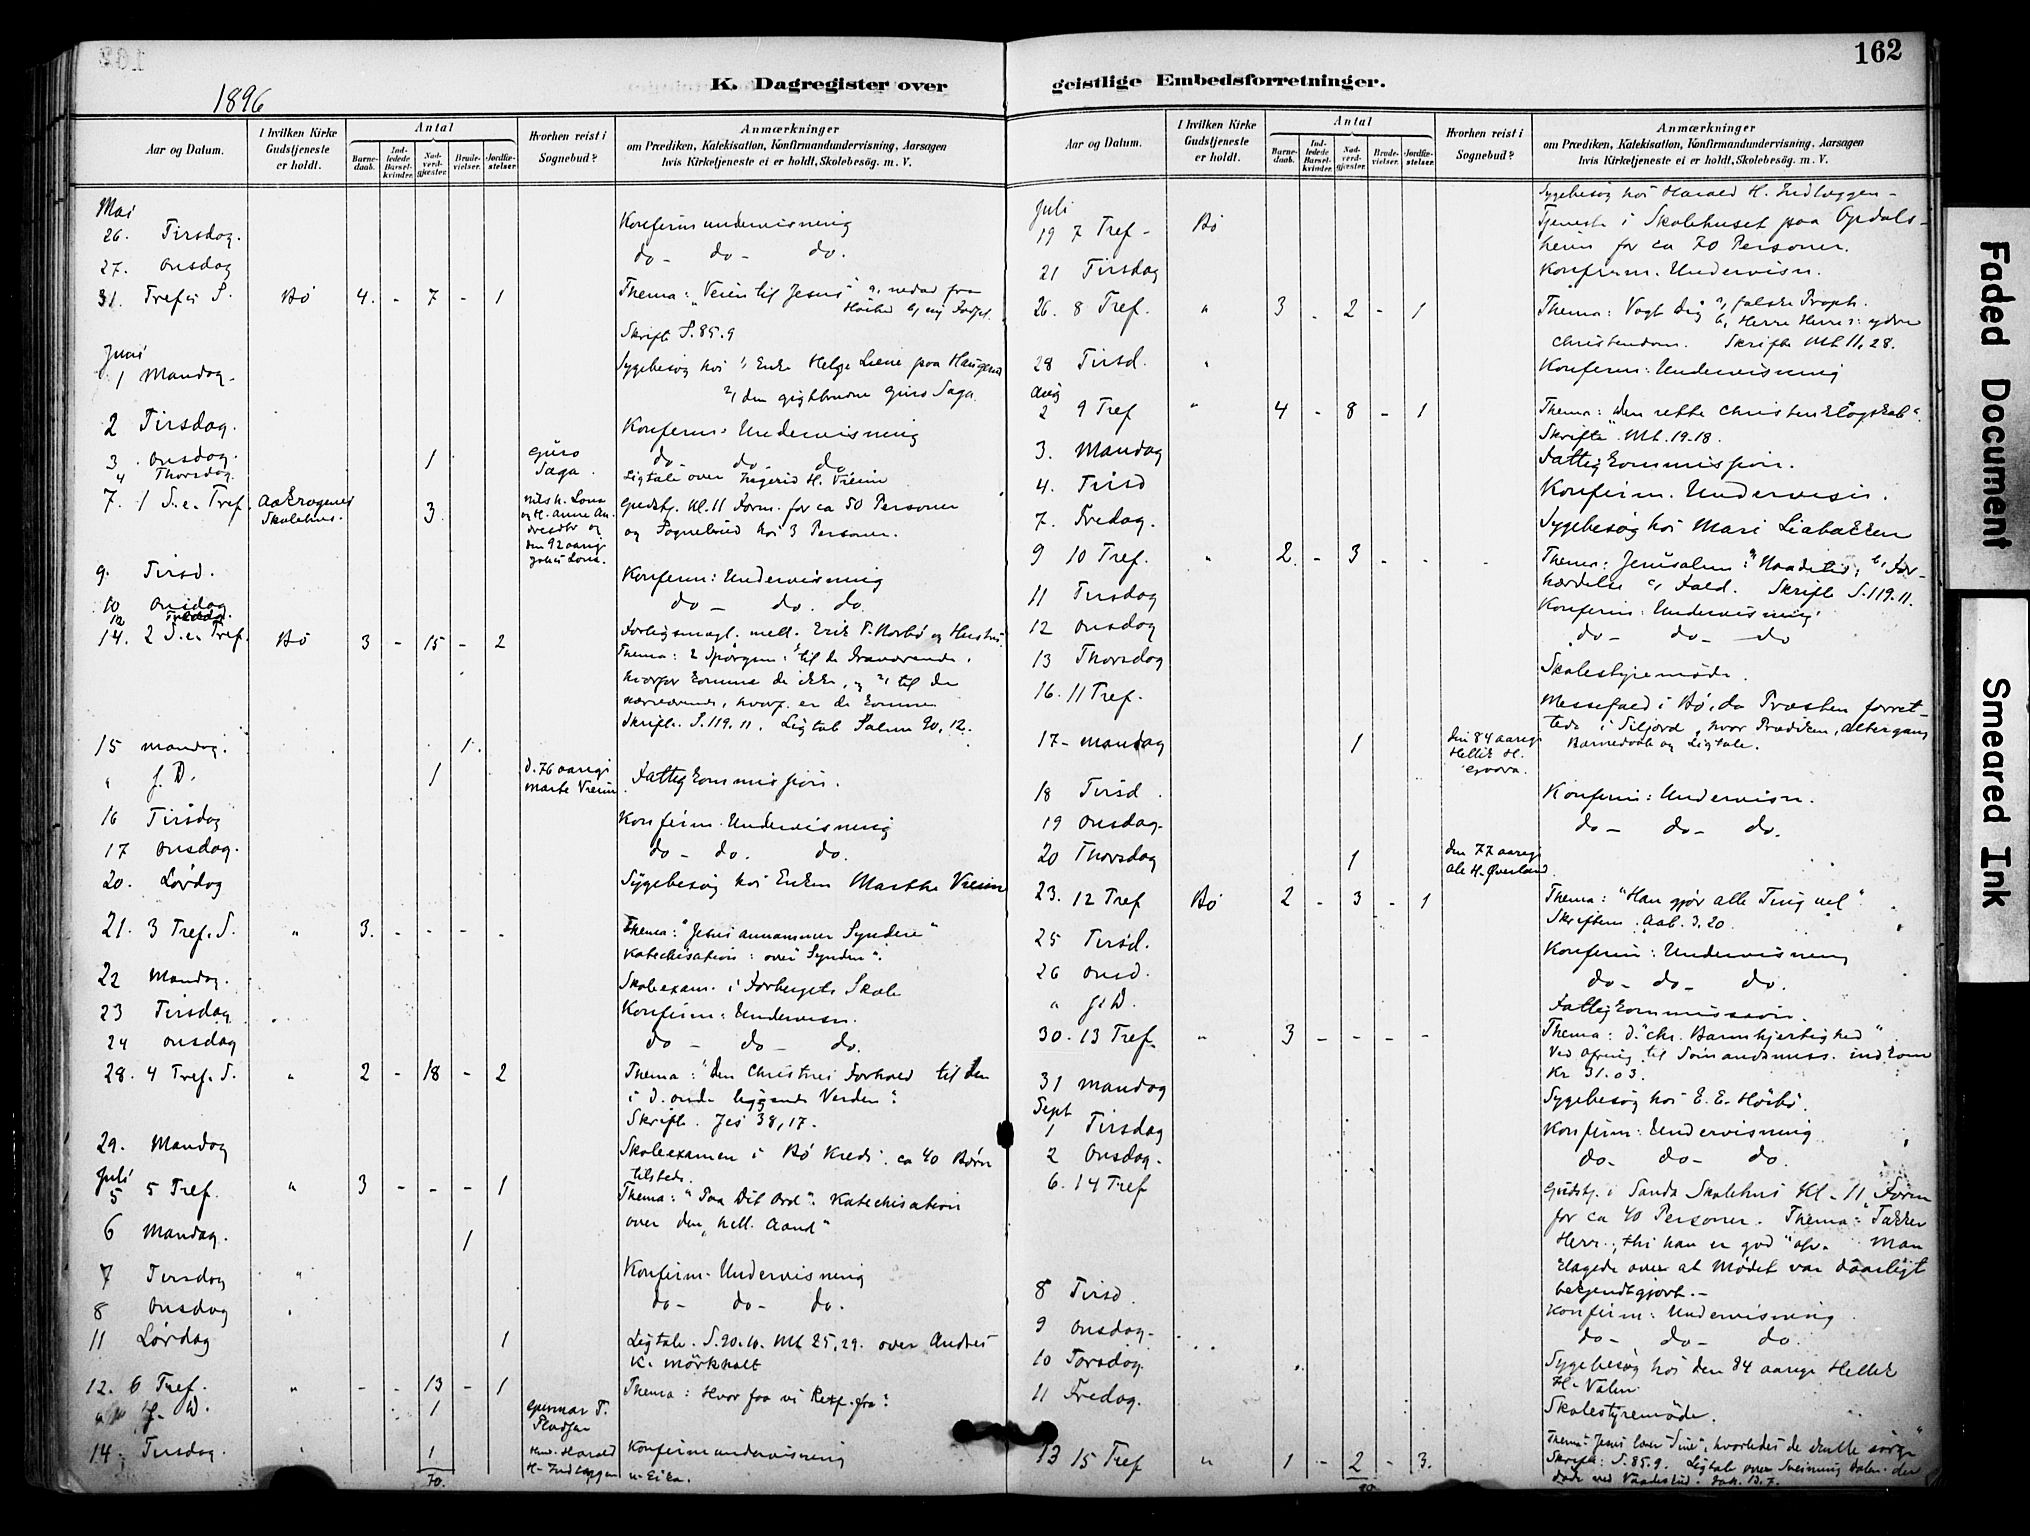 162
K. Dagregister over geistlige Embedsforretninger.
1896
Aar og Datum.
I hvilken Kirke Gudstjeneste er holdt.
Antal
Barnedaab.
Indledede Barselkvinder.
Nadverdgjæster.
Brudevielser.
Jordfæstelser.
Hvorhen reist i Sognebud?
Anmærkninger
om Prædiken, Katekisation, Konfirmandundervisning, Aarsagen
hvis Kirketjeneste ei er holdt, Skolebesög. m. V.
Mai
26. Tirsdag. Konfirmundervisning
27. Onsdag do- do- do.
31. Trefs S. Bö 4. - 7 - 1 Thema: "Veien til Jesus"
Skrifte S. 85.9
Juni
1 Mandag. Sygebesøg hos 1, Enke Helge Liene paa Haugene
2, den gigtbrudne Guro Saga
2 Tirsdag. Konfirm. Undervisning
3. Onsdag. 1 Guro Saga. do- do- do
4 Thorsdag. Ligtale over Ingerid H. Vreim
7. 1 S. e. Tref. Skolehus. 3 Gudstj. Kl. 11 Form. for ca 50 Personer
og Sognebud hos 3 Personer.
den 92 aarige
9. Tirsd. Konfirm: Undervisning
10 Onsdag do- do. do.
12
14. 2 S. e. Tref. Bö 3 - 15 - 2 Forligsmægl. mell. Erik P. Norbø og Hustru
Thema: 2 Spörgsm: 1 til de fraværende,
hvorfor komme de ikke, og 2, til de
nærværende, hvorf. er de komne
Skrifte. S. 119. 11. Ligtale Salme 90, 12.
15 Mandag. 1.
" s. D. 1 d. 76 aarige Marte Vreim Fattigkommission.
16 Tirsdag Konfirm. Undervisning
17 Onsdag. do- do. do.
20. Lørdag Sygebesøg hos Enken Marthe Vreim
21. 3 Tref. S. " 3. - - - - Thema: "Jesus annammer Syndere"
Katechisation: over Synden".
22 Mandag. Skoleexam. i Forbergets Skole
23 Tirsdag Konfirm: Undervisn.
24 Onsdag do- do- do.
28. 4 Tref. S. " 2 - 18 - 2 Thema: "Den Christnes Forhold til den
i d. onde liggende Verden".
Skrifte. Jes 38, 17.
29. Mandag Skoleexamen i Bö Kreds. ca 40 Börn
tilstede.
Juli
5 5 Tref. " 3 - - - 1 Thema: "Paa Dit Ord". Katechisation
over den "hell. Aand"
6 Mandag. 1
7 Tirsdag " Konfirm. Undervisning
8 Onsdag do- do- do.
11 Lørdag 1 Ligtale. S. 90. 10. Mt 25, 29. over Andres
K. Mörkholt
12. 6 Tref. " - - 13 - 1 Thema: Hvor faa vi Retf. fra?
s. D. 1 Gunnar T.
14. Tirsdag. 1 Harald Konfirmundervisning
70.
Aar og Datum.
I hvilken Kirke Gudstjeneste er holdt.
Antal
Barnedaab.
Indledede Barselkvinder.
Nadverdgjæster.
Brudevielser.
Jordfæstelser.
Hvorhen reist i Sognebud?
Anmærkninger
om Prædiken, Katekisation, Konfirmandundervisning, Aarsagen
hvis Kirketjeneste ei er holdt, Skolebesög. m. V.
Sygebesøg hos Harald H.
Juli
19 7 Tref- Bö Tjeneste i Skolehuset paa Opdals-
heim for ca 70 Personer.
21 Tirsdag Konfirm. Undervisn.
26. 8 Tref. " 3 - 2 - 1 Thema: Vogt dig a, falske Proph.
b, Herre Herre: ydre
Christendom. Skrifte Mt. 11, 28.
28 Tirsd. " Konfirm: Undervisning
Aug
2 9 Tref " 4 - 8 - 1 Thema: "Den rette Christenklogskab".
Skrifte Mt. 19-18.
3. Mandag Fattigkommission.
4. Tirsd Konfirm. Undervisn.
7. Fredag. Sygebesøg hos Mari Liabakken
9 10 Tref. " 2. - 3 - - Thema: Jerusalems a, Naadetid, b, For-
hærdelse c, Fald. Skrifte S. 119. 11.
11 Tirsdag Konfirm: Undervisning
12 Onsdag do- do- do
13 Thorsdag Skolestyremøde.
16. 11 Tref. Messefald i Bö, da Præsten forret-
tede i Siljord, hvor Prædiken, Altergang
Barnedaab og Ligtale.
17- Mandag 1 den 84 aarige Hellik H.
18 Tirsd. Konfirm: Undervisn.
19 Onsdag. do- do- do.
20 Thorsdag 1 den 77 aarige Ole H. Øverland
23. 12 Tref Bö 2 - 3 - 1 Thema: "Han gjør alle Ting vel"
Skriftem. Aab. 3. 20.
25 Tirsd. Konfirm: Undervisning
26 Onsd. do- do- do.
" s. D. Fattigkommission.
30. 13 Tref. " 3 - - - - Thema: d. "chr. Barmhjertighed"
Ved Ofring til Sömandsmiss. indkom
Kr 31.03.
31 Mandag Sygebesøg hos E. E. Høibø.
Sept
1 Tirsdag Konfirm: Undervisning
2 Onsdag. do- do- do.
6. 14 Tref Gudstj. i Sanda Skolehus Kl- 11 Form
for ca 40 Personer. Thema: "Takker
Herr., thi han er god" osv. Man
klagede over at Mødet var daarligt
bekjendtgjort.-
8 Tirsd. Konfirm: Undervisning
9 Onsdag. do- do- do.
10 Torsdag. Sygebesøg hos den 84 aarige Hellik
H. Valen
11 Fredag. Skolestyremöde.
13 15 Tref " 1 - 2 - 3. Thema: Jesus lover Sine, hvorledes de skulle sørge"
Skrifte: S. 85. 9. Ligtale over
Faded Document
Smeared Ink